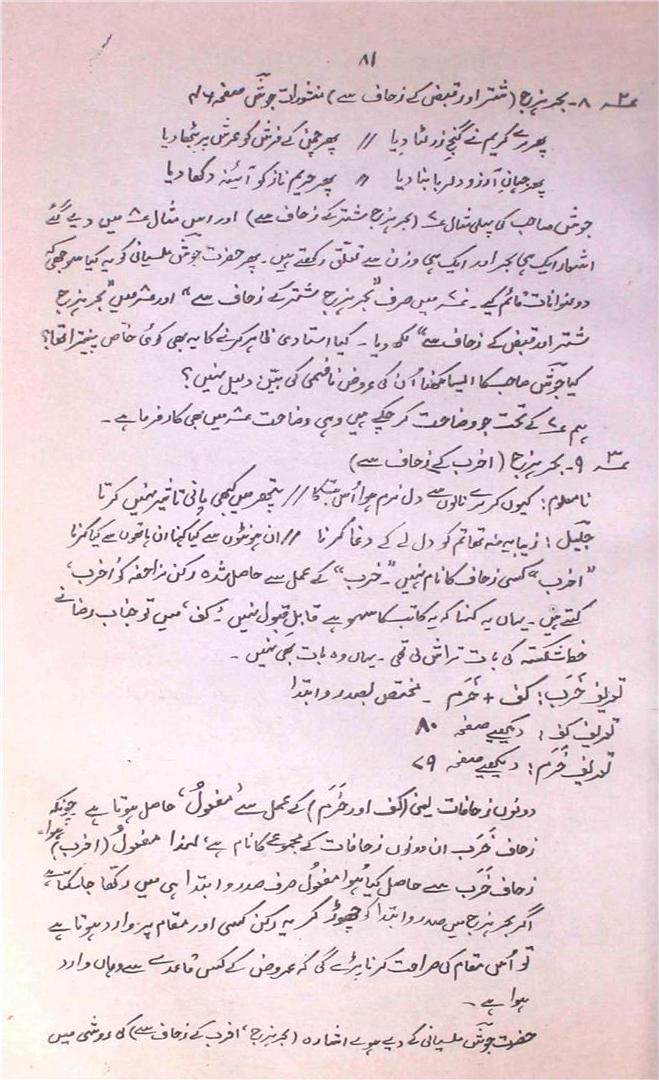 ۸۱
۲؎ ۸۔ بحر ہزج (شتر اور قبض کے زحاف سے) منشورات جوشؔ صفحہ ۷۴
پھر مرے کریم نے گنجِ زر لٹا دیا // پھر چمن کے فرش کو عرش پر بٹھا دیا
پھر جہانِ آرزو دلربا بنا دیا // پھر حریمِ ناز کو آئینہ دکھا دیا
جوشؔ صاحب کی پہلی مثال ۷؎ (بحر ہزج شتر کے زحاف سے) اور اس مثال ۸؎ میں دیے گئے
اشعار ایک ہی بحر اور ایک ہی وزن سے تعلق رکھتے ہیں۔ پھر حضرت جوشؔ ملسیانی کو یہ کیا سوجھی کہ
دو عنوانات قائم کیے۔ ۷؎ میں صرف "بحر ہزج شتر کے زحاف سے" اور ۸؎ میں "بحر ہزج
شتر اور قبض کے زحاف سے" لکھ دیا۔ کیا استادی ظاہر کرنے کا یہ بھی کوئی خاص پینترا تھا؟
کیا جوشؔ صاحب کا ایسا لکھنا اُن کی عروض نافہمی کی بیّن دلیل نہیں؟
ہم ۷؎ کے تحت جو وضاحت کر چکے ہیں وہی وضاحت ۸؎ میں بھی کارفرما ہے۔
۳؎ ۹۔ بحر ہزج (اخرب کے زحاف سے)
نامعلوم: کیوں کر مرے نالوں سے دل نرم ہوا اُس بت کا // پتھر میں کبھی پانی تاثیر نہیں کرتا
جلیلؔ: زیبا یہ نہ تھا تم کو دل لے کے دغا کرنا // ان ہونٹوں سے کیا کہنا ان ہاتھوں سے کیا کرنا
"اخرب" کسی زحاف کا نام نہیں "خرب" کے عمل سے حاصل شدہ رکن مزاحفہ کو 'اخرب'
کہتے ہیں۔ یہاں یہ کہنا کہ یہ کاتب کا سہو ہے قابلِ قبول نہیں۔ 'کف' میں تو جناب رضا نے
خطِ شکستہ کی بات تراشی تھی۔ یہاں وہ بات بھی نہیں۔
تعریف خَرَب: کف + خَرَم ۔ مختص بصدر و ابتدا
تعریف کف: دیکھیے صفحہ ۸۰
تعریف خَرَم: دیکھیے صفحہ ۷۹
دونوں زحافات یعنی (کف اور خَرَم) کے عمل سے 'مفعولُ' حاصل ہوتا ہے چونکہ
زحاف خَرَب ان دونوں زحافات کے مجموعے کا نام ہے، لہٰذا مفعولُ (اخرب) ہوا۔
زحاف خَرَب سے حاصل کیا ہوا مفعولُ صرف صدر و ابتدا ہی میں رکھا جا سکتا ہے
اگر بحر ہزج میں صدر و ابتدا کو چھوڑ کر یہ رکن کسی اور مقام پر وارد ہوتا ہے
تو اُس مقام کی صراحت کرنا پڑے گی کہ عروض کے کس قاعدے سے وہاں وارد
ہوا ہے۔
حضرت جوشؔ ملسیانی کے دیے ہوئے اشارہ (بحر ہزج، اخرب کے زحاف سے) کی روشنی میں